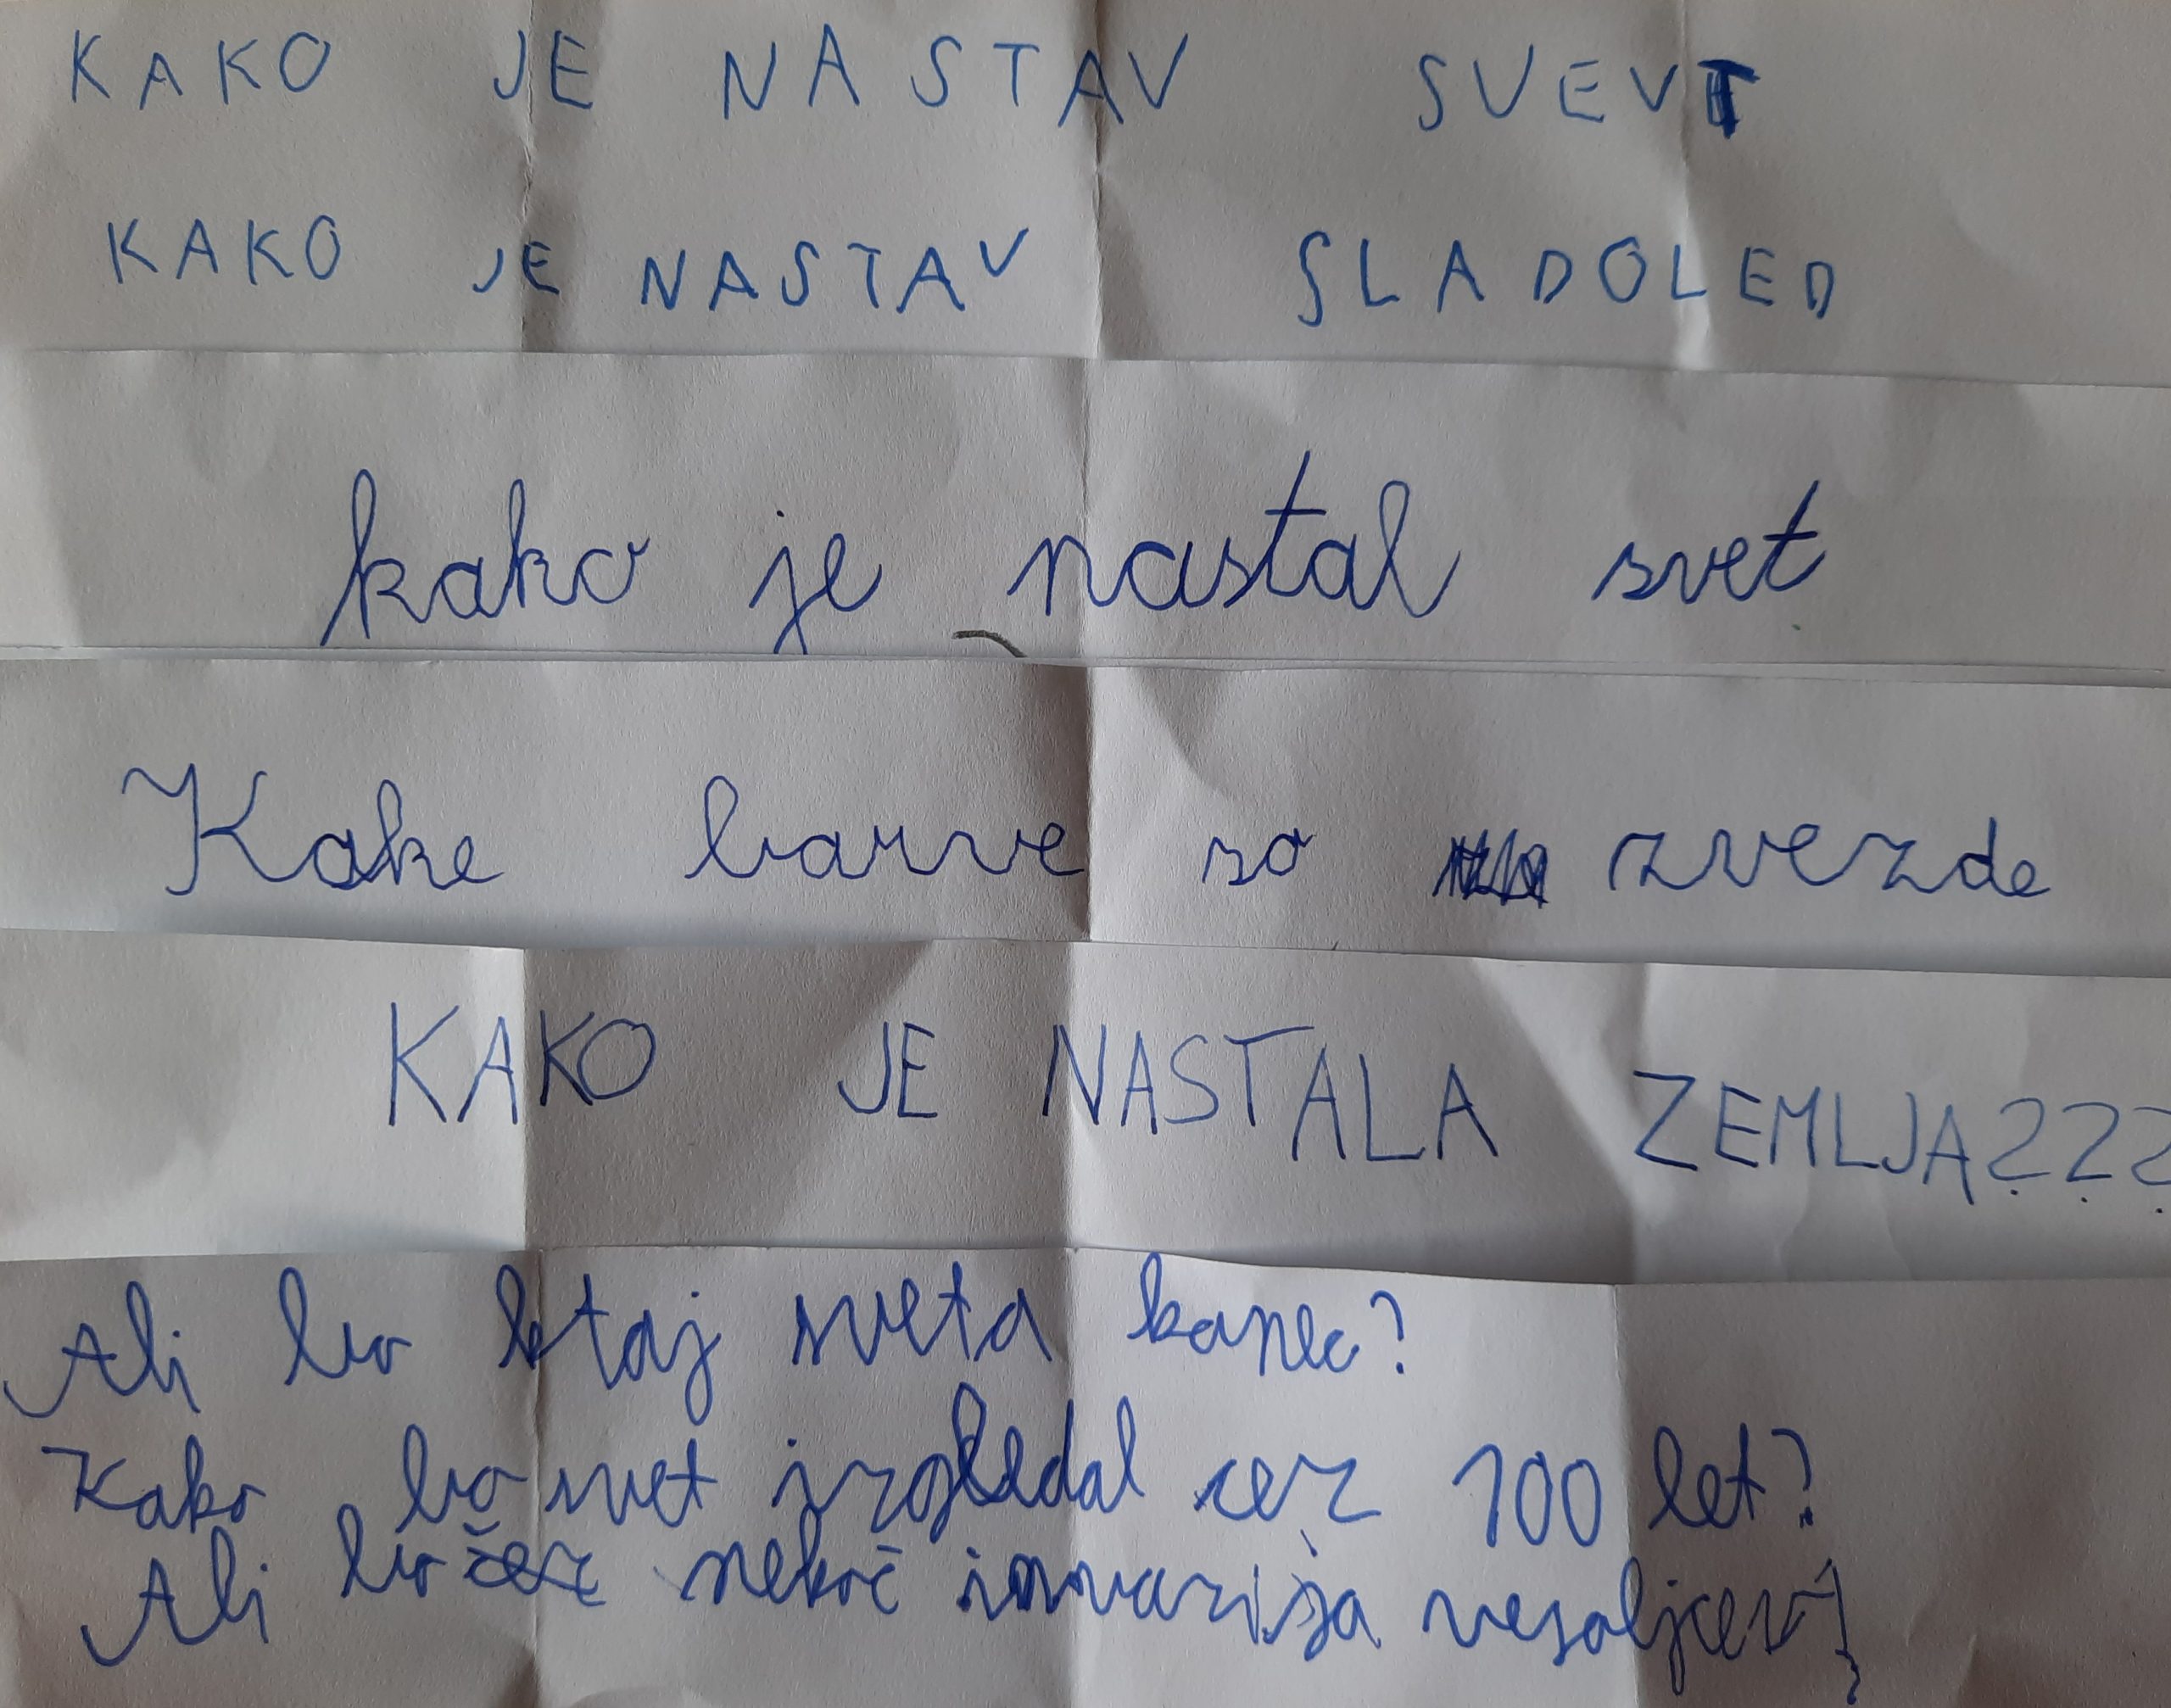 KAKO JE NASTAV SVEVT
KAKO JE NASTAV SLADOLED
kako je nastal svet
Kake barve so zvezde
KAKO JE NASTALA ZEMLJA???
Ali bo ktaj sveta konec?
Kako bo svet izgledal cez 100 let?
Ali bo nekoč invazija vesoljcev?